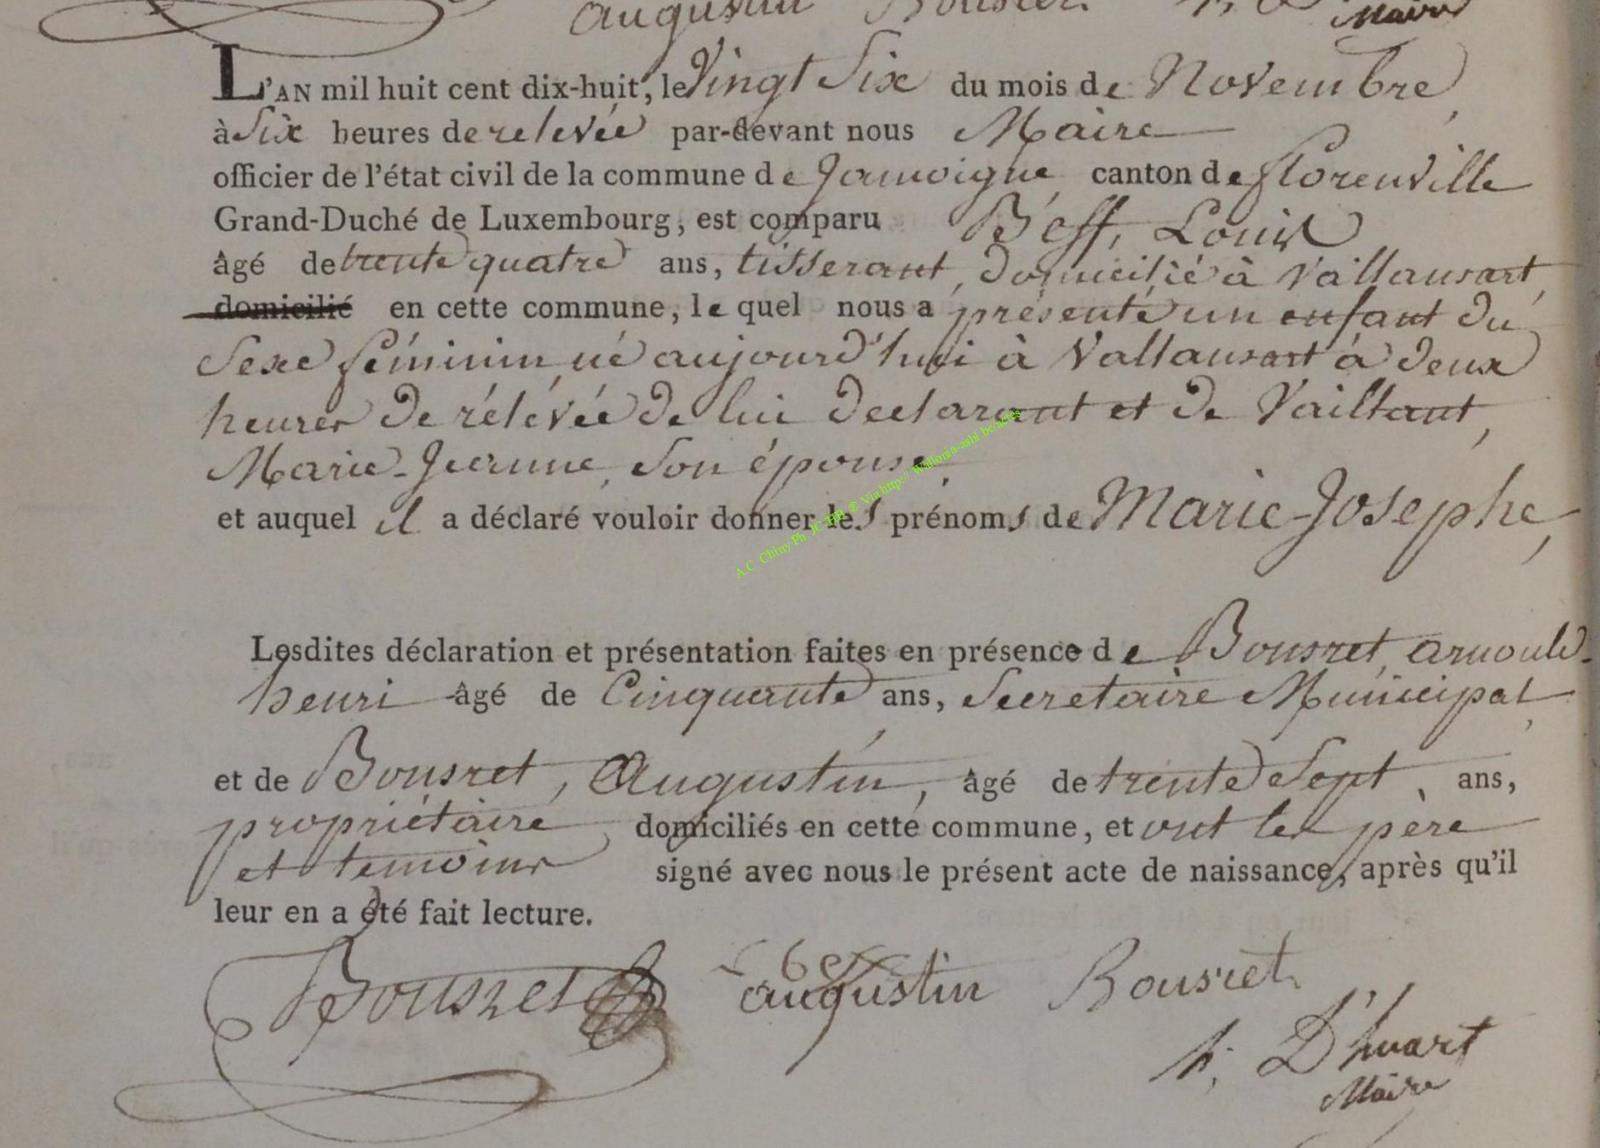 Augustin Bousret. h. D
Maire
L'AN mil huit cent dix-huit, le Vingt Six du mois de Novembre,
à Six heures de relevée par-devant nous Maire
officier de l'état civil de la commune de Jamoigne, canton de florenville
Grand-Duché de Luxembourg, est comparu Beff, Louis
âgé de trente quatre ans, tisserant, domicilié à Vallansart,
domicilié en cette commune, le quel nous a présenté un enfant du
Sexe féminin, né aujourd'hui à Vallansart à deux
heures de rélévée de lui declarant et de Vaillant,
Marie-Jeanne, son épouse
et auquel il a déclaré vouloir donner les prénoms de Marie-Josephe,
Lesdites déclaration et présentation faites en présence de Bousret, arnould-
henri âgé de Cinquante ans, Secretaire Municipal,
et de Bousret, Augustin, âgé de trente Sept, ans,
propriétaire, domiciliés en cette commune, et ont les père
et temoins signé avec nous le présent acte de naissance, après qu'il
leur en a été fait lecture.
Bousret L Bef
augustin Bousret.
h. D'huart
Maire